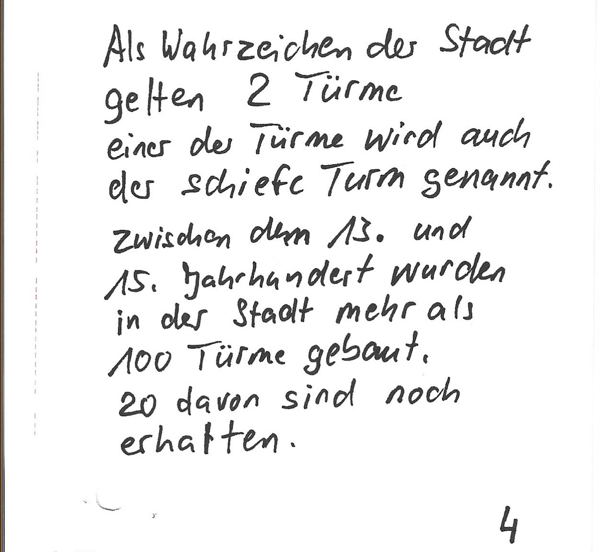 Als Wahrzeichen der Stadt
gelten 2 Türme
einer der Türme wird auch
der schiefe Turm genannt.
Zwischen dem 13. und
15. Jahrhundert wurden
in der Stadt mehr als
100 Türme gebaut.
20 davon sind noch
erhalten.
4